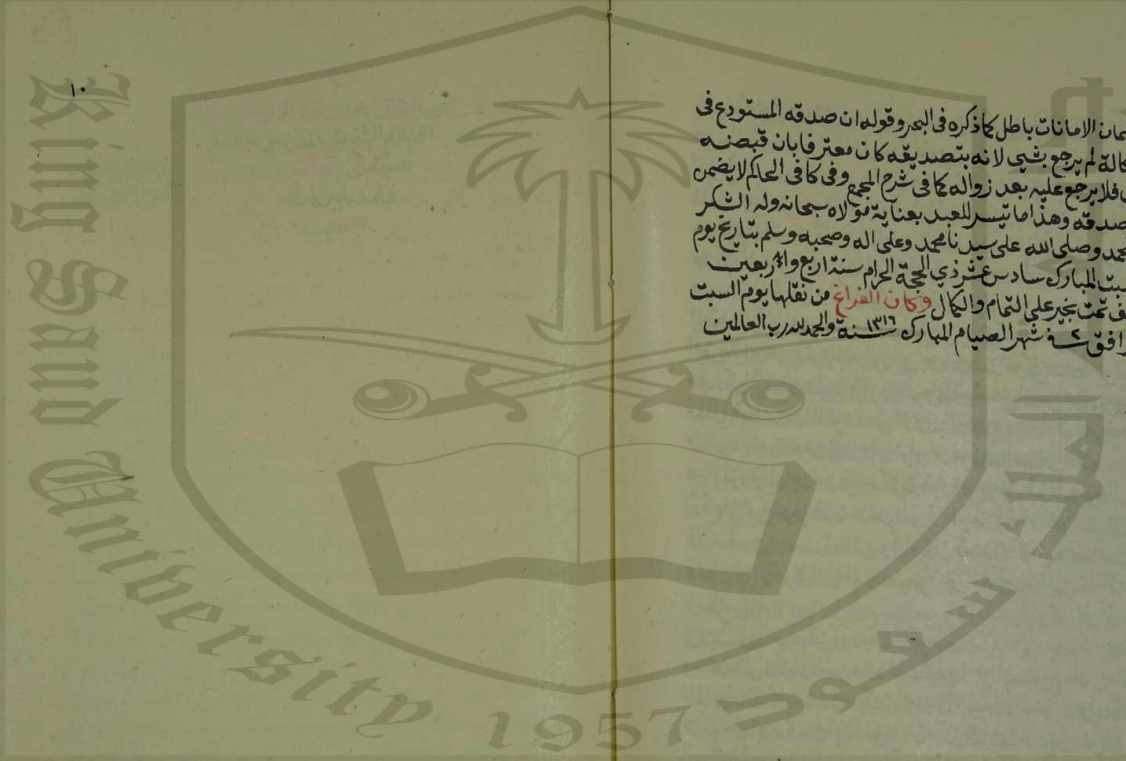 ١٠
مان الامانات باطل كما ذكره فى البحر وقوله ان صدقه المستودع فى
كالة لم يرجع بشي لانه بتصديقه كان معترفا بان قبضه
فلا يرجع عليه بعد زواله كما فى شرح المجمع وفى كافى الحاكم لا يضمن
صدقه وهذا ما تيسر للعبد بعناية مولاه سبحانه وله الشكر
حمد وصلى الله على سيدنا محمد وعلى اله وصحبه وسلم بتاريخ يوم
سبت المبارك سادس عشر ذي الحجة الحرام سنة اربع واربعين
ف تمت بخير على التمام والكمال وكان الفراغ من نقلها يوم السبت
افق ٢ شهر الصيام المبارك ١٣١٦ سنة والحمد لله رب العالمين
King Saud University
1957
سعود